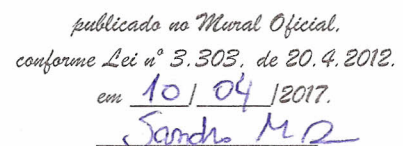 publicado no Mural Oficial,
conforme Lei nº 3.303, de 20.4.2012.
em 10 / 04 /2017.
Sandro M